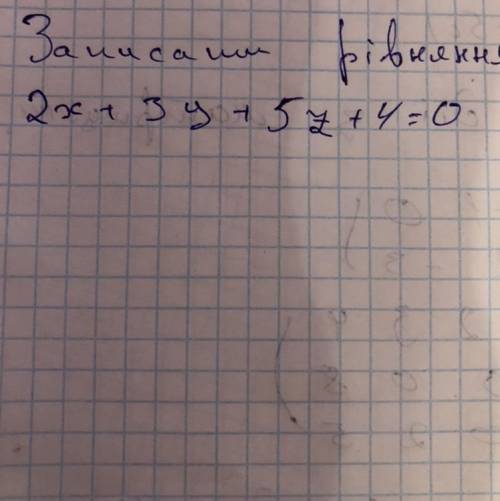 Записати рівняння
2x + 3y + 5z + 4 = 0